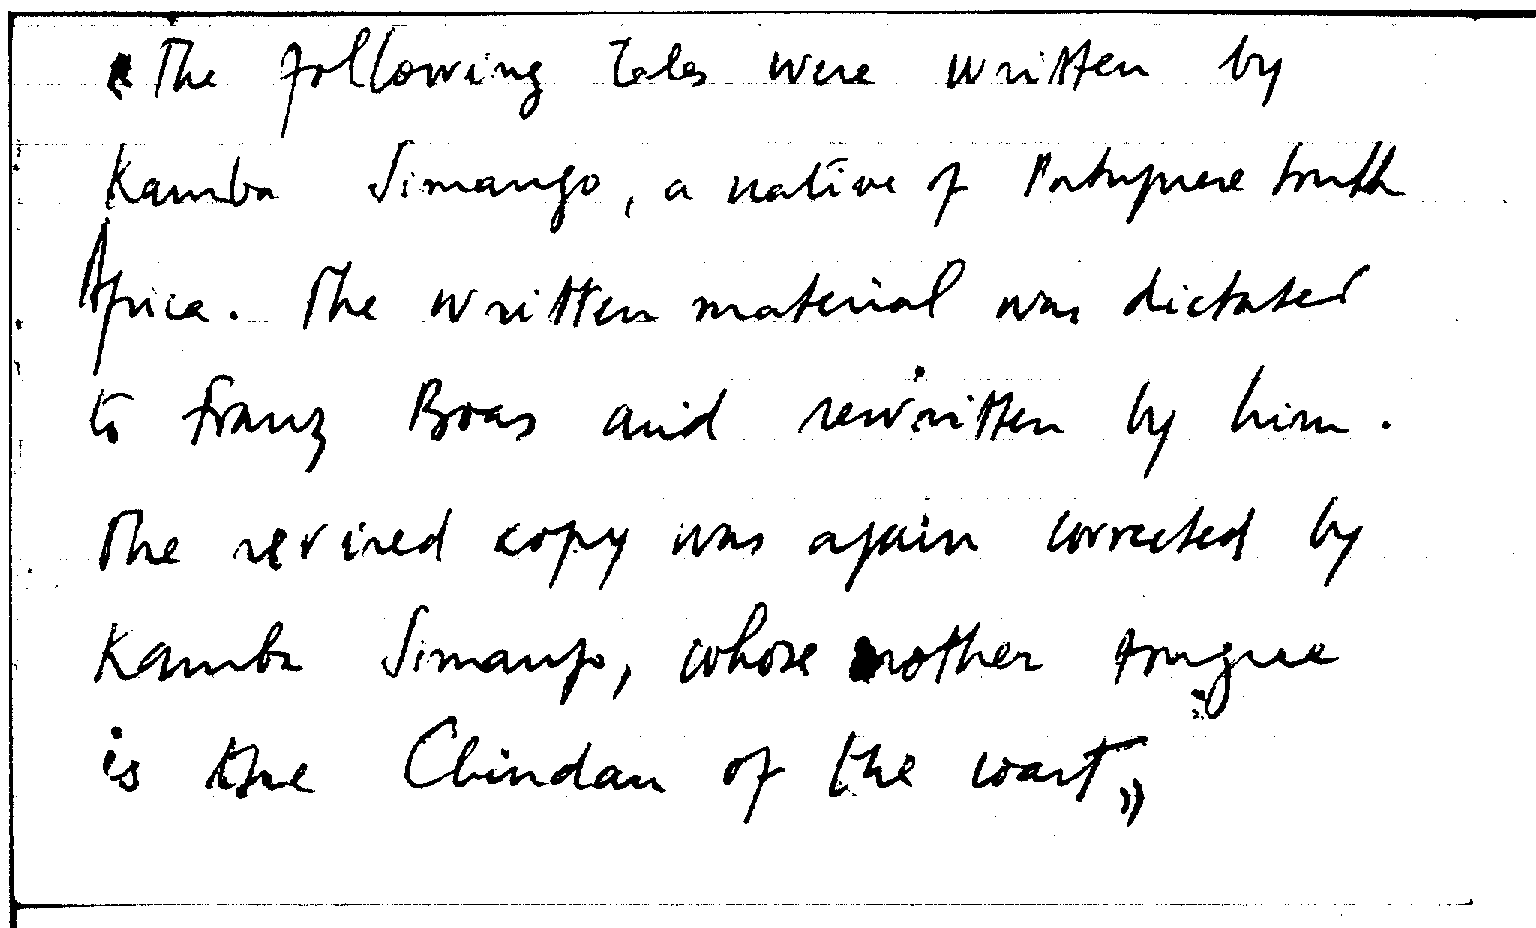 "The following tales were written by
Kamba Simango, a native of Portuguese South
Africa. The written material was dictated
to Franz Boas and rewritten by him.
The revised copy was again corrected by
Kamba Simango, whose mother tongue
is the Chindau of the coast"